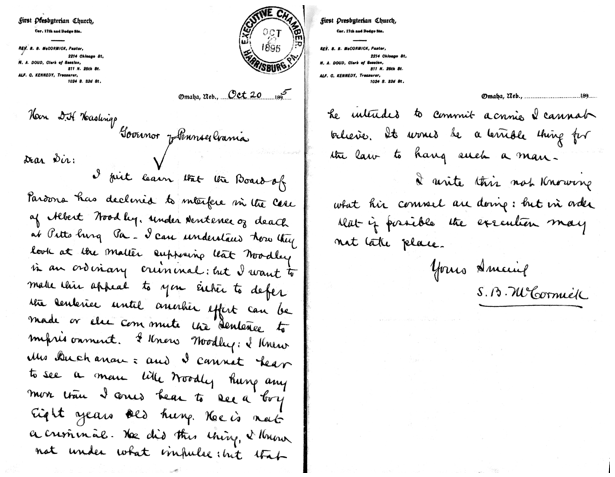 First Presbyterian Church,
Cor. 17th and Dodge Sts.
REV. S. B. McCORMICK, Pastor,
2214 Chicago St.
R. A. DOUD, Clerk of Session,
811 N. 25th St.
ALF. C. KENNEDY, Treasurer,
1034 S. 33d St.
EXECUTIVE CHAMBER
OCT
1895
HARRISBURG, PA.
Omaha, Neb., Oct 20 1895
Hon D. H. Hastings
Governor of Pennsylvania
Dear Sir:
I just learn that the Board of
Pardons has declined to interfere in the case
of Albert Woodley, under sentence of death
at Pittsburg Pa - I can understand how they
look at the matter supposing that Woodley
is an ordinary criminal: but I want to
make this appeal to you either to defer
the sentence until another effort can be
made or else commute the sentence to
imprisonment. I know Woodley: I knew
Mrs Buchanan: and I cannot bear
to see a man like Woodley hung any
more than I could bear to see a boy
eight years old hung. He is not
a criminal. He did this thing, I know
not under what impulse: but that
First Presbyterian Church,
Cor. 17th and Dodge Sts.
REV. S. B. McCORMICK, Pastor,
2214 Chicago St.
R. A. DOUD, Clerk of Session,
811 N. 25th St.
ALF. C. KENNEDY, Treasurer,
1034 S. 33d St.
Omaha, Neb., 189
he intended to commit a crime I cannot
believe. It would be a terrible thing for
the law to hang such a man -
I write this not knowing
what his counsel are doing: but in order
that if possible the execution may
not take place -
Yours
S. B. McCormick